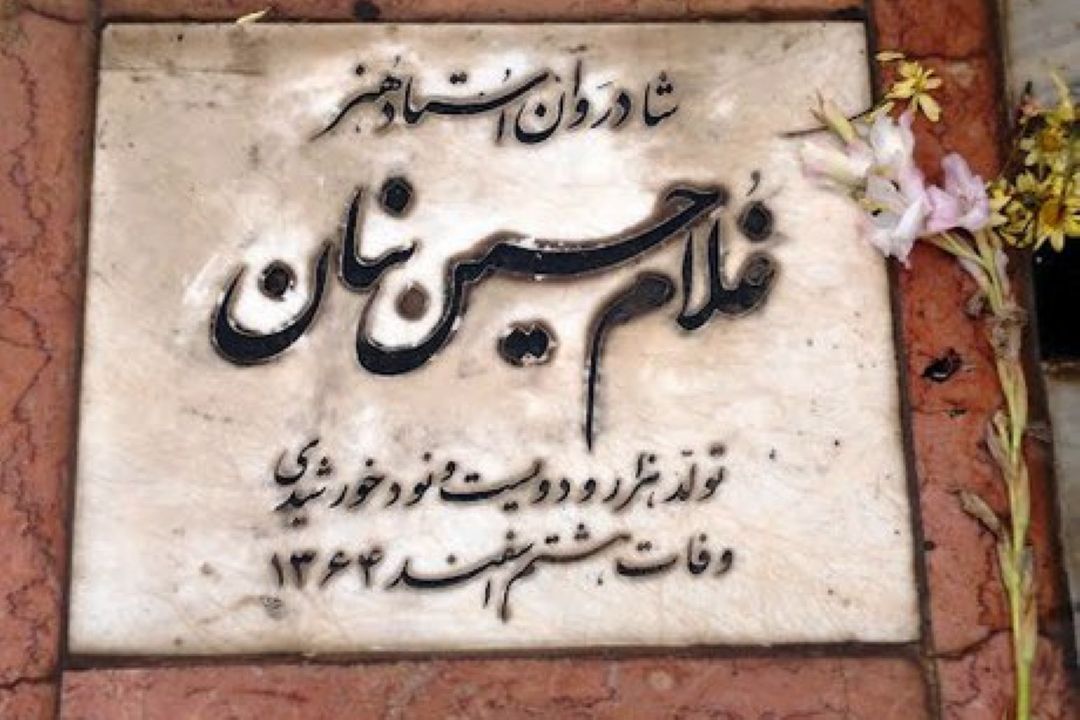 شادروان استاد هنر
غلامحسین بنان
تولد هزار و دویست و نود خورشیدی
وفات هشتم اسفند ۱۳۶۴